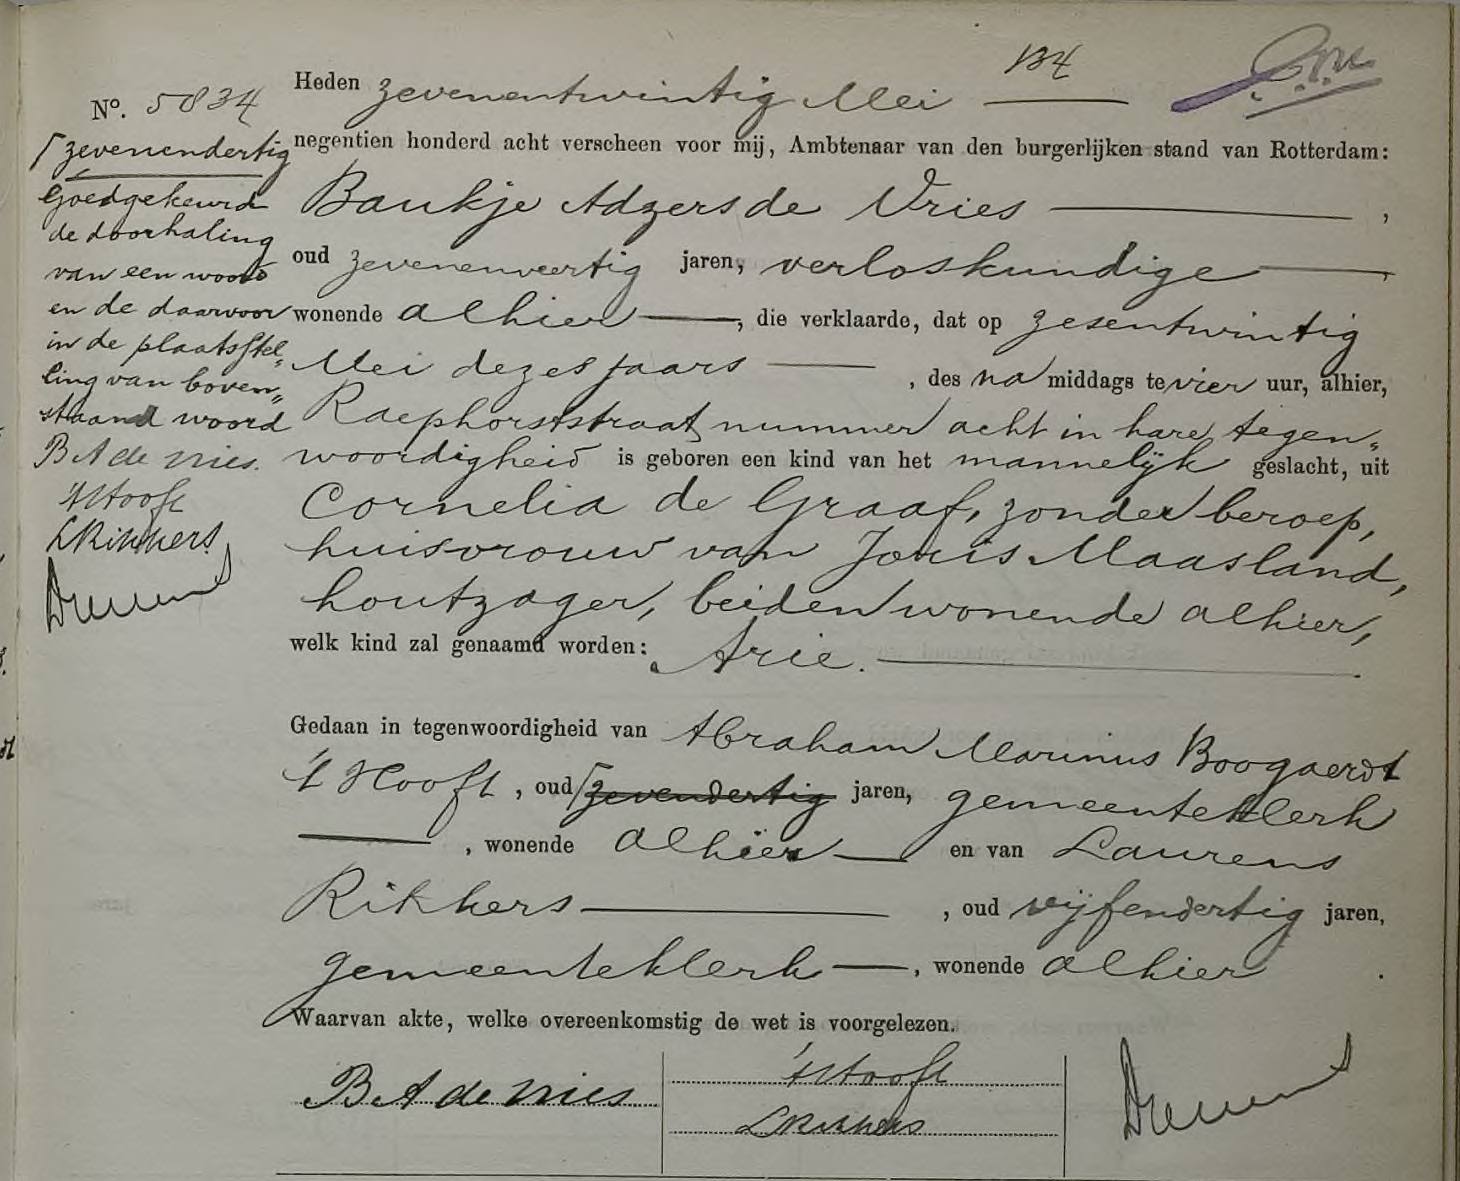 134
Nº. 5834
Heden zevenentwintig Mei
negentien honderd acht verscheen voor mij, Ambtenaar van den burgerlijken stand van Rotterdam:
Baukje Adzers de Vries ,
oud zevenenveertig jaren, verloskundige ,
wonende alhier , die verklaarde, dat op zesentwintig
Mei dezes jaars , des na middags te vier uur, alhier,
Raephorststraat nummer acht in hare tegen„
woordigheid is geboren een kind van het mannelijk geslacht, uit
Cornelia de Graaf, zonder beroep,
huisvrouw van Joris Maasland,
houtzager, beiden wonende alhier,
welk kind zal genaamd worden: Arie.
Gedaan in tegenwoordigheid van Abraham Marinus Boogaerdt
't Hooft , oud ⌈zevendertig jaren, gemeenteklerk
, wonende alhier en van Laurens
Rikkers , oud vijfendertig jaren,
gemeenteklerk , wonende alhier .
Waarvan akte, welke overeenkomstig de wet is voorgelezen.
B A de Vries
't Hooft
L Rikkers
⌈zevenendertig
Goedgekeurd
de doorhaling
van een woord
en de daarvoor
in de plaatsstel„
ling van boven„
staand woord
B A de Vries.
't Hooft
L Rikkers